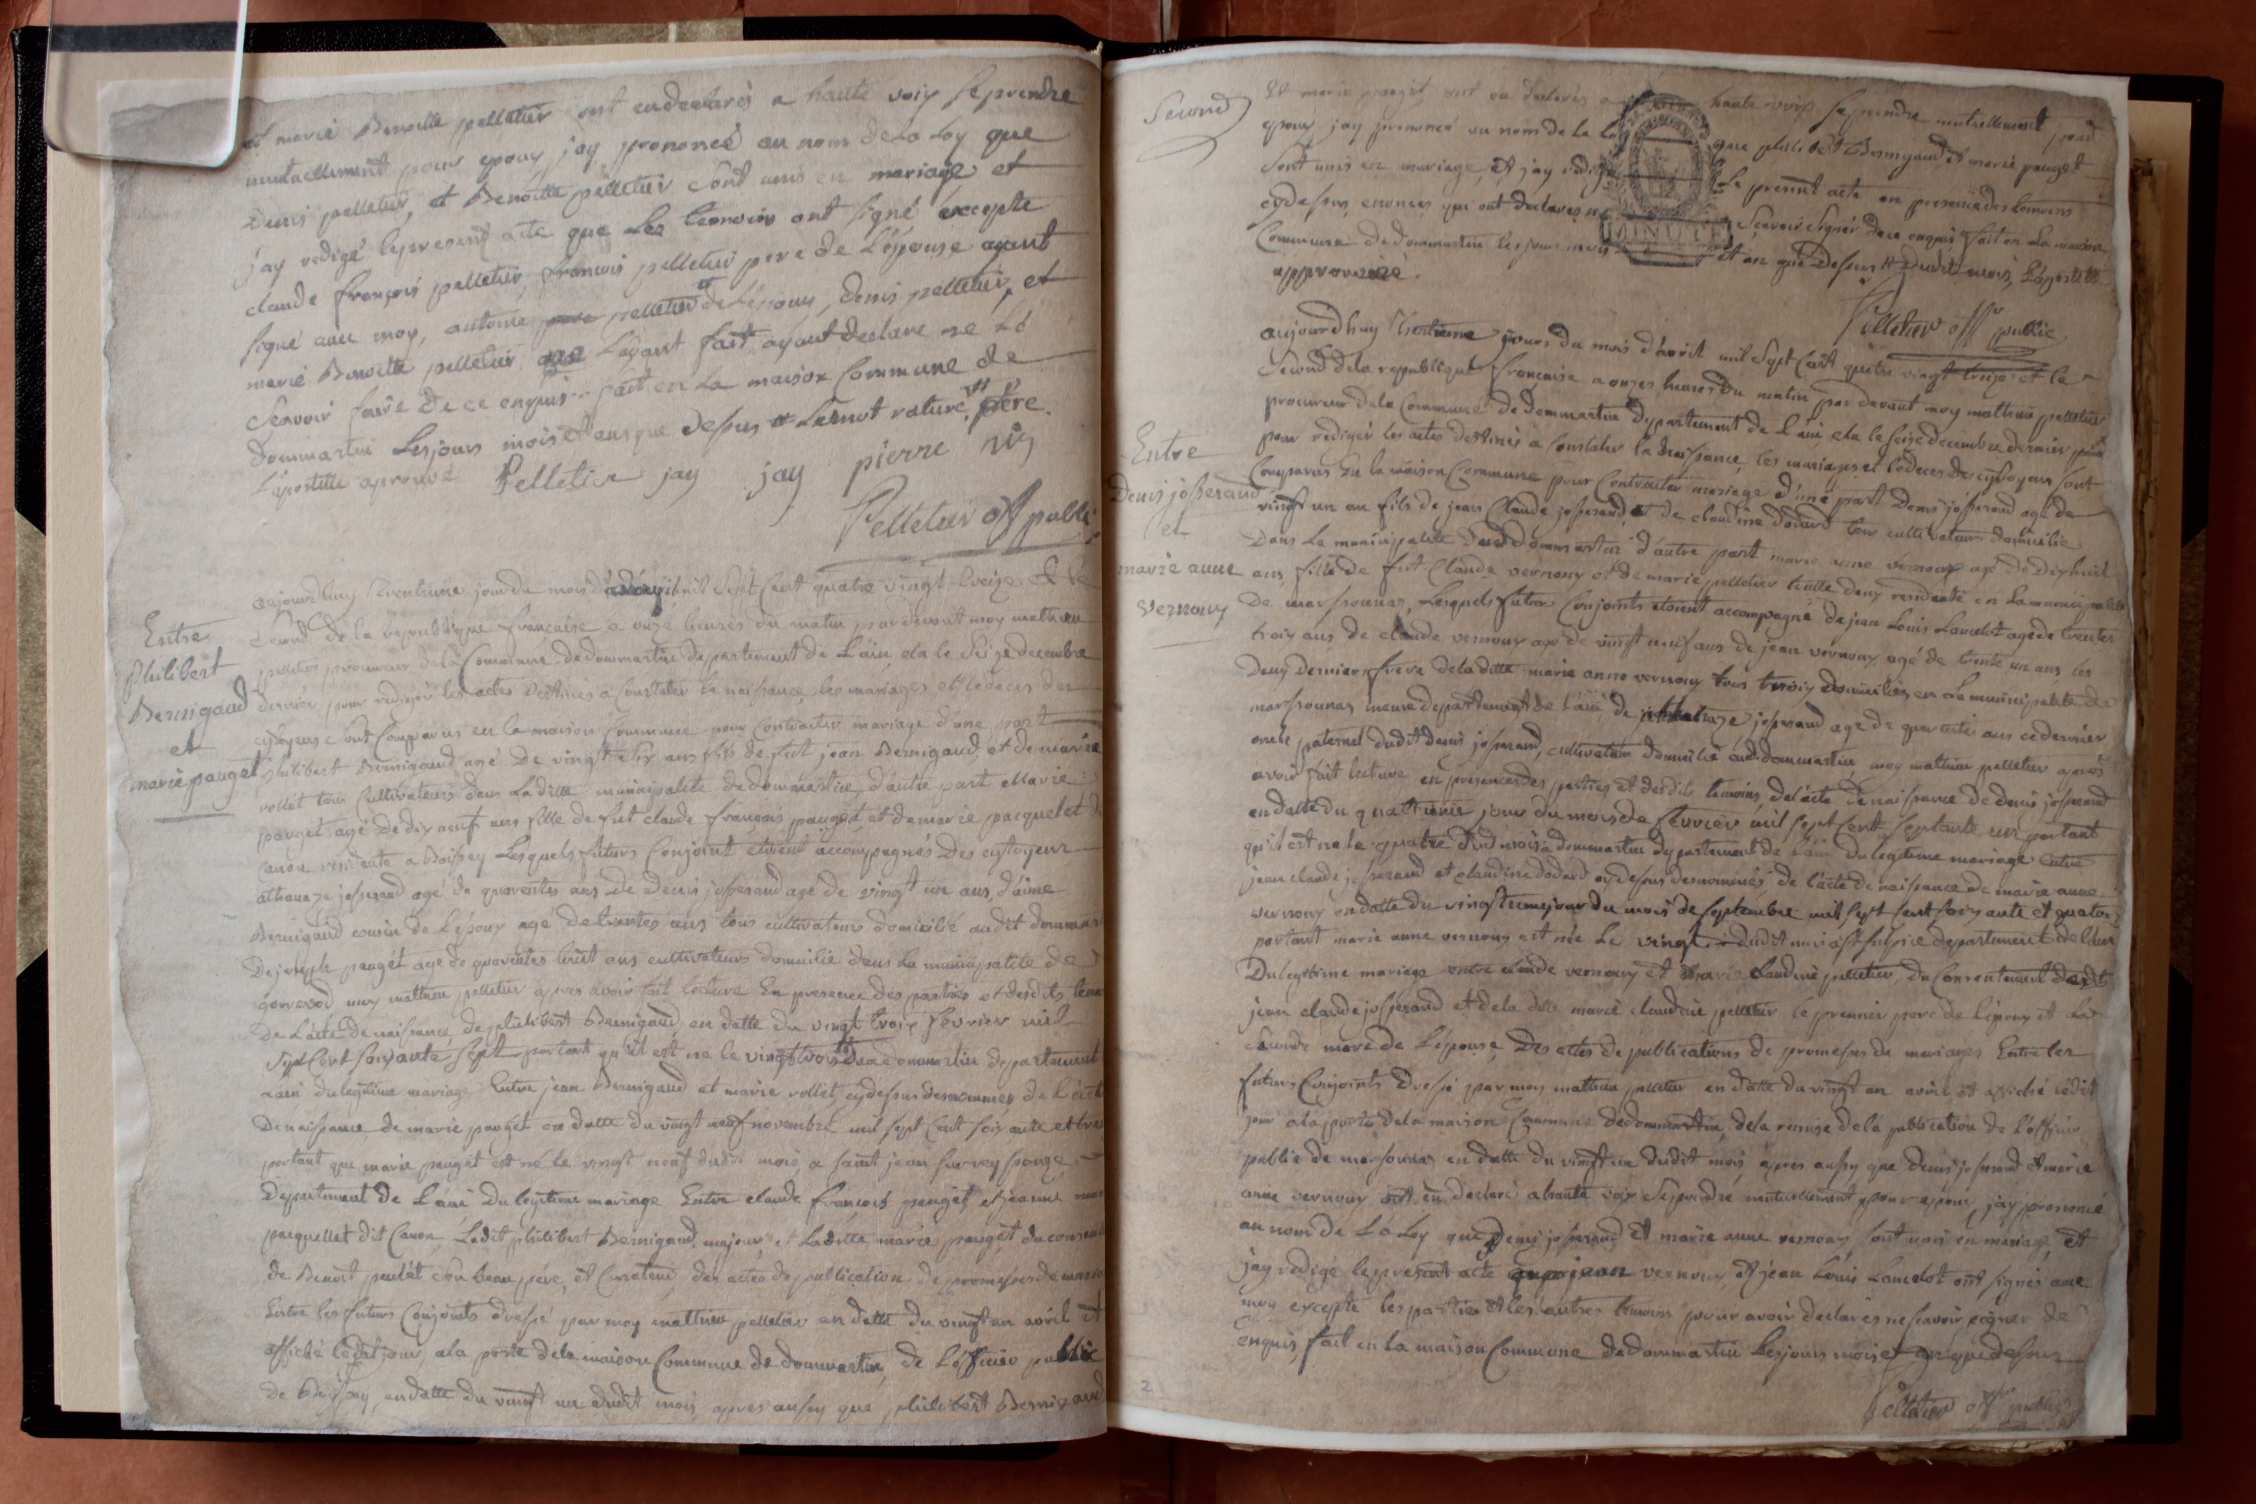 et marie Benoitte pelletier ont endeclarés a haute voix se prendre
mutuellement pour epoux jay prononcé au nom de la loy que
Denis pelletier, et Benoitte pelletier sont unis en mariage et
jay redigé lepresent acte que les temoins ont signé excepte
claude françois pelletier, francois pelletier pere de l'épouse ayant
signé avec moy, antoine pere pelletier de l'époux, denis pelletier, et
marie Benoitte pelletier layant fait ayant declare ne le
scavoir faire de ce enquis. fait en la maison commune de
dommartin les jours mois et an que dessus le mot rature père
l'apostille aprouvé Pelletier jay jay pierre
Pelletier off public
Entre
Philibert
Bernigaud
et
marie pauget
aujourdhuy trentieme jour du mois d'avril mil sept cent quatre vingt treize et le
second de la republique francaise a onze heures du matin pardevant moy mathieu
pelletier procureur de la commune de dommartin departement de l'ain, elu le seize decembre
dernier pour redigér les actes destinés a constater la naissance, les mariages et le deces des
cytoyens sont comparus en la maison commune pour contracter mariage d'une part
philibert Bernigaud agé de vingt six ans fils de fut jean Bernigaud et de marie
rollet tous cultivateurs dans la ditte municipalite de dommartin, d'autre part Marie
pauget agé de dix neuf ans fille de fut claude françois pauget et de marie pacquelet d
canon residente a Boissey lesquels futurs conjoint etoient accompagnés des cytoyens
athanaze josserand agé de quarentes ans de denis josserand agé de vingt un ans, d'aime
Bernigaud cousin de l'époux age de trentes ans tous cultivateurs domicilié audit dommar
De joseph pauget age de quarentes huit ans cultivateurs domicilie dans la municipalite de
gorrevod moy mathieu pelletier apres avoir fait lecture en presence des parties et desdits temo
de l'acte de naissance de philibert Bernigaud en datte du vingt trois fevrier mil
sept cent soixante sept portant qu'il est ne le vingt trois a dommartin departement
l'ain du legitime mariage entre jean Bernigaud et marie rollet cydessus denommes de l'acte
de naissance de marie pauget en datte du vingt neuf novembre mil sept cent soixante et tre
portant que marie pauget est né le vingt neuf dudit mois a saint jean sur reyssouze
departement de l'ain du legitime mariage entre claude françois pauget et jeanne marie
pacquellet dit canon, ledit philibert Bernigaud majeur et laditte marie pauget du consen
de Benoit son beau père, et curateur, des actes de publication de promesses de maria
entre les futurs conjoints dressé par moy mathieu pelletier en datte du vingt un avril et
affiché ledit jour a la porte de la maison commune de dommartin, de l'officier public
de Boissey, en datte du vingt un dudit mois apres aussy que philibert Bernigaud
Second
Et marie pauget ont en declarés a haute voix se prendre mutuellement pour
epoux jay prononcé au nom de la loy que philibert Bernigaud et marie pauget
sont unis en mariage, et jay redigé le present acte en presence des temoins
cydessus enoncés qui ont declarés ne scavoir signer de ce enquis fait en la maison
commune de dommartin les jours mois et an que dessus
approuvée.
MINUTE
Pelletier off public
Entre
Denis josserand
et
marie anne
vernoux
aujourd'huy trentieme jours du mois d'avril mil sept cent quatre vingt treize et le
second de la republique française a onzes heures du matin par devant moy mathieu pelletier
procureur de la commune de dommartin departement de l'ain, elu le seize decembre dernier pour
pour rediger les actes destinés a constater la naissance, les mariages et le deces des cytoyens sont
comparus en la maison commune pour contracter mariage d'une part Denis josserand agé de
vingt un an fils de jean claude josserand, et de claudine dodard tous cultivateurs domicilie
dans la municipalité dudit dommartin d'autre part marie anne vernoux agé de dix huit
ans fille de fut claude vernoux et de marie pelletier residente en la municipalité
de marsonnas, lesquels futurs conjoints etoient accompagné de jean louis lancelot agé de trentes
trois ans de claude vernoux agé de vingt neuf ans de jean vernoux agé de trente un ans les
deux derniers frere de la ditte marie anne vernoux tous trois domiciliés en la municipalité de
marsonnas meme departement de l'ain, de athanaze josserand age de quarentes ans ce dernier
oncle paternel dudit denis josserand, cultivateur domicilié audit dommartin, moy mathieu pelletier apres
avoir fait lecture en presence des parties et desdits temoins, de l'acte de naissance de denis josserand
en datte du quatrieme jour du mois de fevrier mil sept cent septante un portant
qu'il est ne le quatre dud mois a dommartin departement de l'ain du legitime mariage entre
jean claude josserand et claudine dodard cydessus denommés de l'acte de naissance de marie anne
vernoux en datte du vingtiemejour du mois de septembre mil sept cent soixante et quatorz
portant marie anne vernoux est née le vingt dudit mois a st sulpice departement de l'ain
du legitime mariage entre claude vernoux et marie claudine pelletier, du consentement dudit
jean claude josserand et de la ditte marie claudine pelletier le premier pere de l'époux et la
seconde mere de l'épouse, des actes de publications de promesses de mariages entre les
futurs conjoints dressé par moy mathieu pelletier en datte du vingt un avril et affiché ledit
jour a la porte de la maison commune de dommartin, de la remise de la publication de l'officier
public de marsonnas en datte du vingt un dudit mois, apres aussy que denis josserand et marie
anne vernoux ont en declaré a haute voix se prendre mutuellement pour epoux, jay prononcé
au nom de la loy que denis josserand et marie anne vernoux sont unis en mariage, et
jay redigé le present acte que jean vernoux et jean louis lancelot ont signés avec
moy excepté les parties et les autres temoins pour avoir declarés ne scavoir signer de
enquis, fait en la maison commune de dommartin les jours mois et an que dessus
Pelletier off public
2